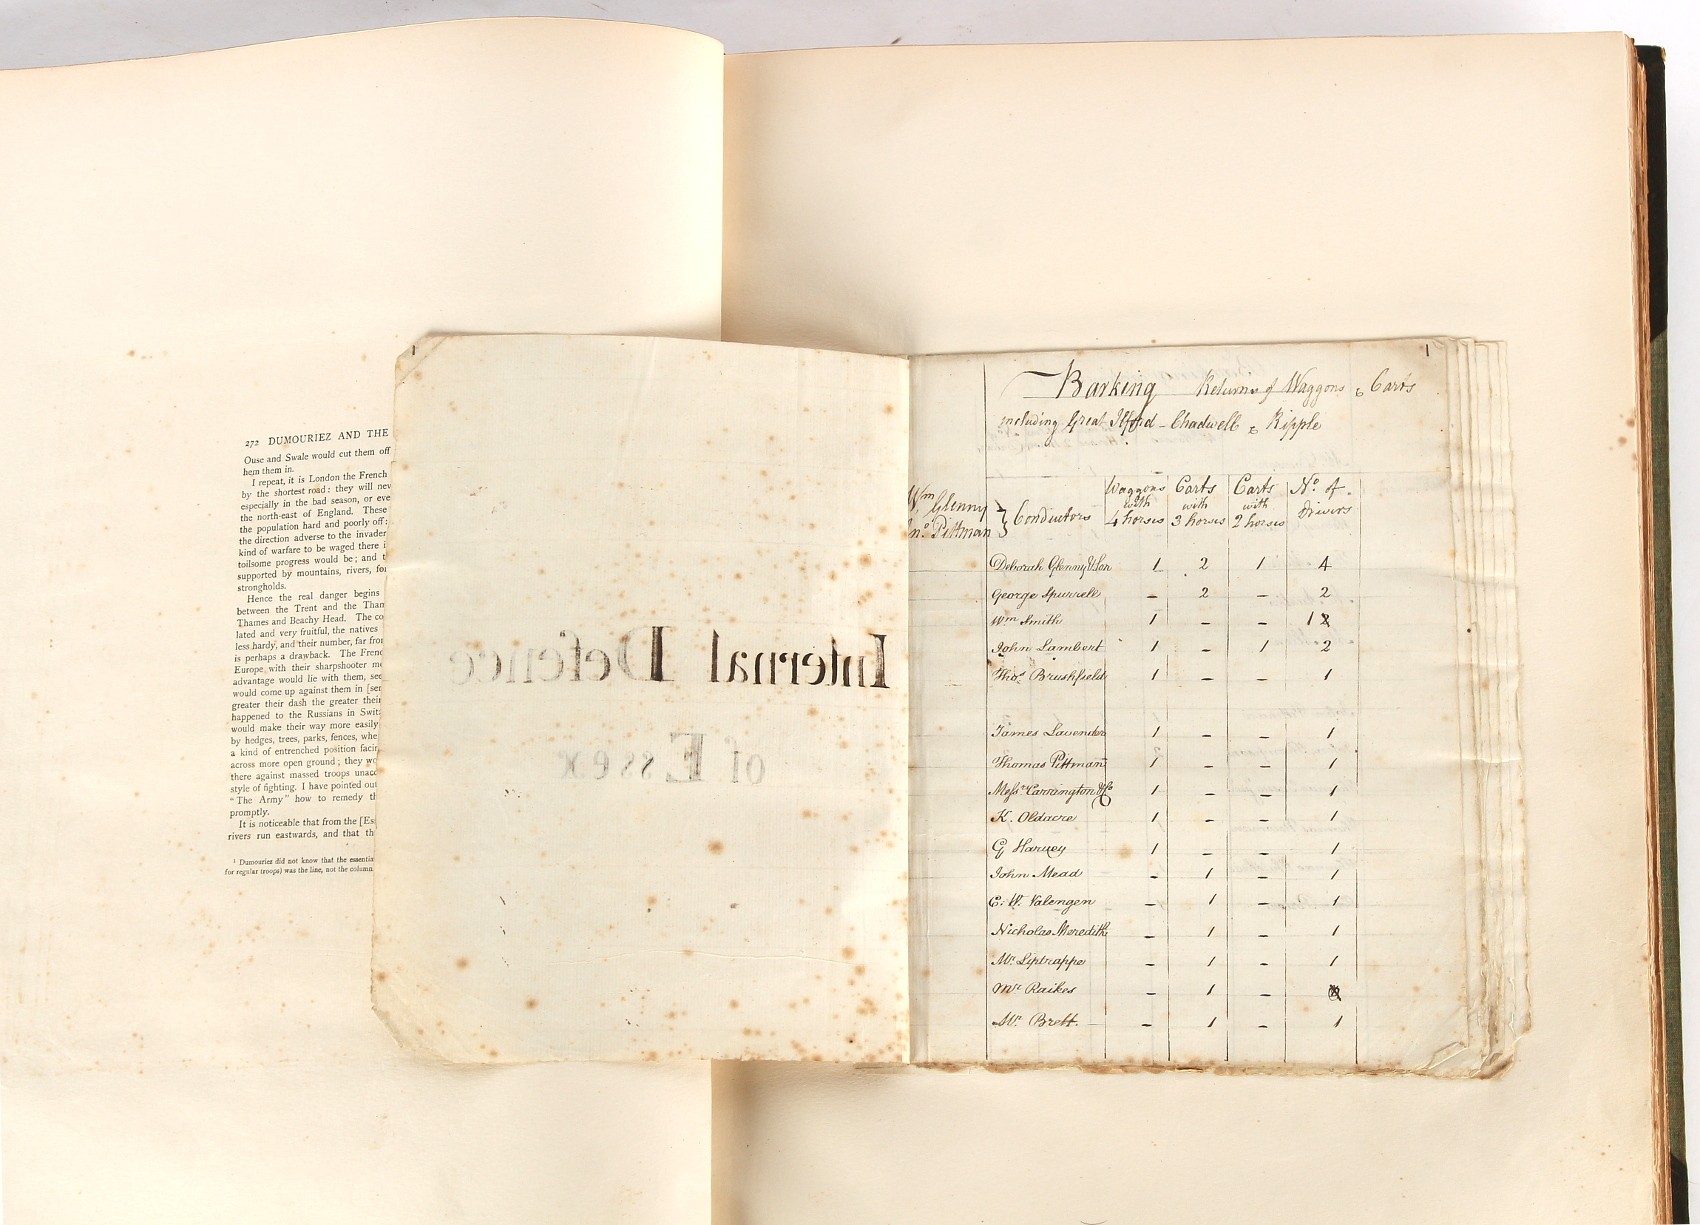 272 DUMOURIEZ AND THE
Ouse and Swale would cut them off
hem them in.
I repeat, it is London the French
by the shortest road: they will nev
especially in the bad season, or eve
the north-east of England. These
the population hard and poorly off:
the direction adverse to the invader
kind of warfare to be waged there i
toilsome progress would be; and t
supported by mountains, rivers, for
strongholds.
Hence the real danger begins
between the Trent and the Tham
Thames and Beachy Head. The co
lated and very fruitful, the natives
less hardy, and their number, far from
is perhaps a drawback. The Frenc
Europe with their sharpshooter me
advantage would lie with them, see
would come up against them in [ser
greater their dash the greater their
happened to the Russians in Switz
would make their way more easily
by hedges, trees, parks, fences, whe
a kind of entrenched position facin
across more open ground; they wo
there against massed troops unacc
style of fighting. I have pointed out
"The Army" how to remedy th
promptly.
It is noticeable that from the [Ess
rivers run eastwards, and that th
1 Dumouriez did not know that the essentia
for regular troops) was the line, not the column.
1
Internal Defence
of Essex
1
Barking Returns of Waggons & Carts
including Great Ilford - Chadwell & Ripple
Wm Glenny
Jno Pittman } Conductors
Waggons with 4 horses Carts with 3 horses Carts with 2 horses No of drivers
Deborah Glenny & Son 1 2 1 4
George Spurrell - 2 - 2
Wm Smith 1 - - 1
John Lambert 1 - 1 2
Thos Brushfield 1 - - 1
James Lavender 1 - - 1
Thomas Pittman 1 - - 1
Messrs Carrington & Co 1 - - 1
K. Oldacre 1 - - 1
G Harvey 1 - - 1
John Mead - 1 - 1
C. W. Valengen - 1 - 1
Nicholas Meredith - 1 - 1
Mr Liptrappe - 1 - 1
Mr Raikes - 1 -
Mr Brett. - 1 - 1